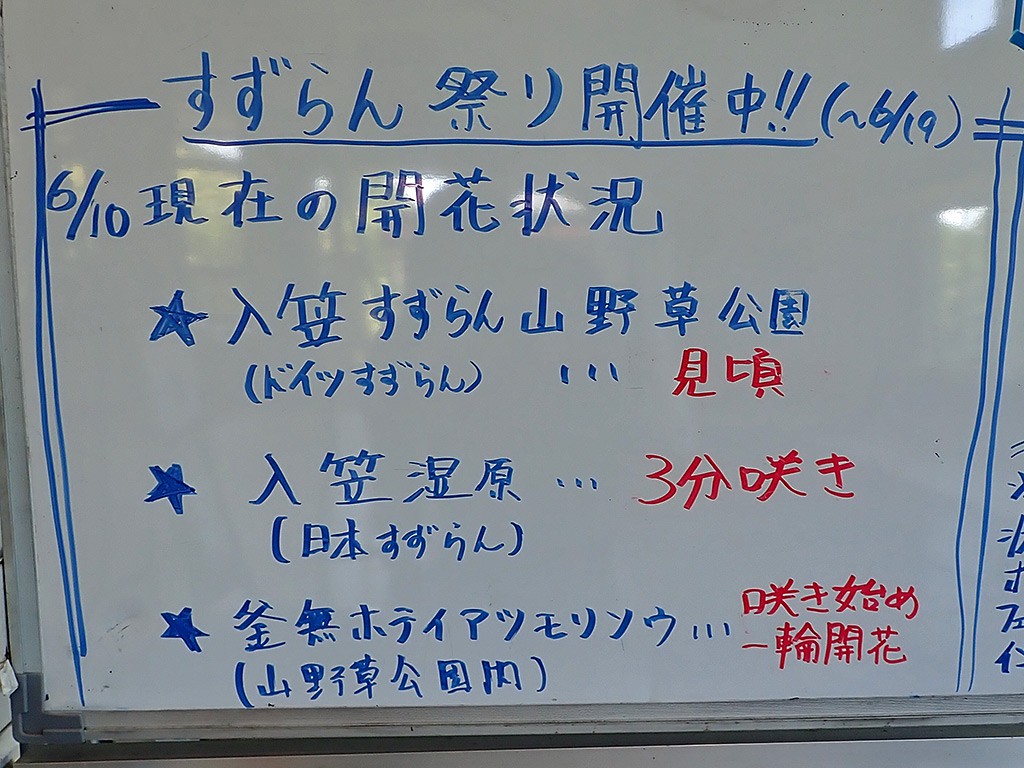 すずらん祭り開催中!!(~6/19)
6/10現在の開花状況
★入笠すずらん山野草公園
(ドイツすずらん) … 見頃
★入笠湿原…3分咲き
(日本すずらん)
★釜無ホテイアツモリソウ…咲き始め
一輪開花
(山野草公園内)